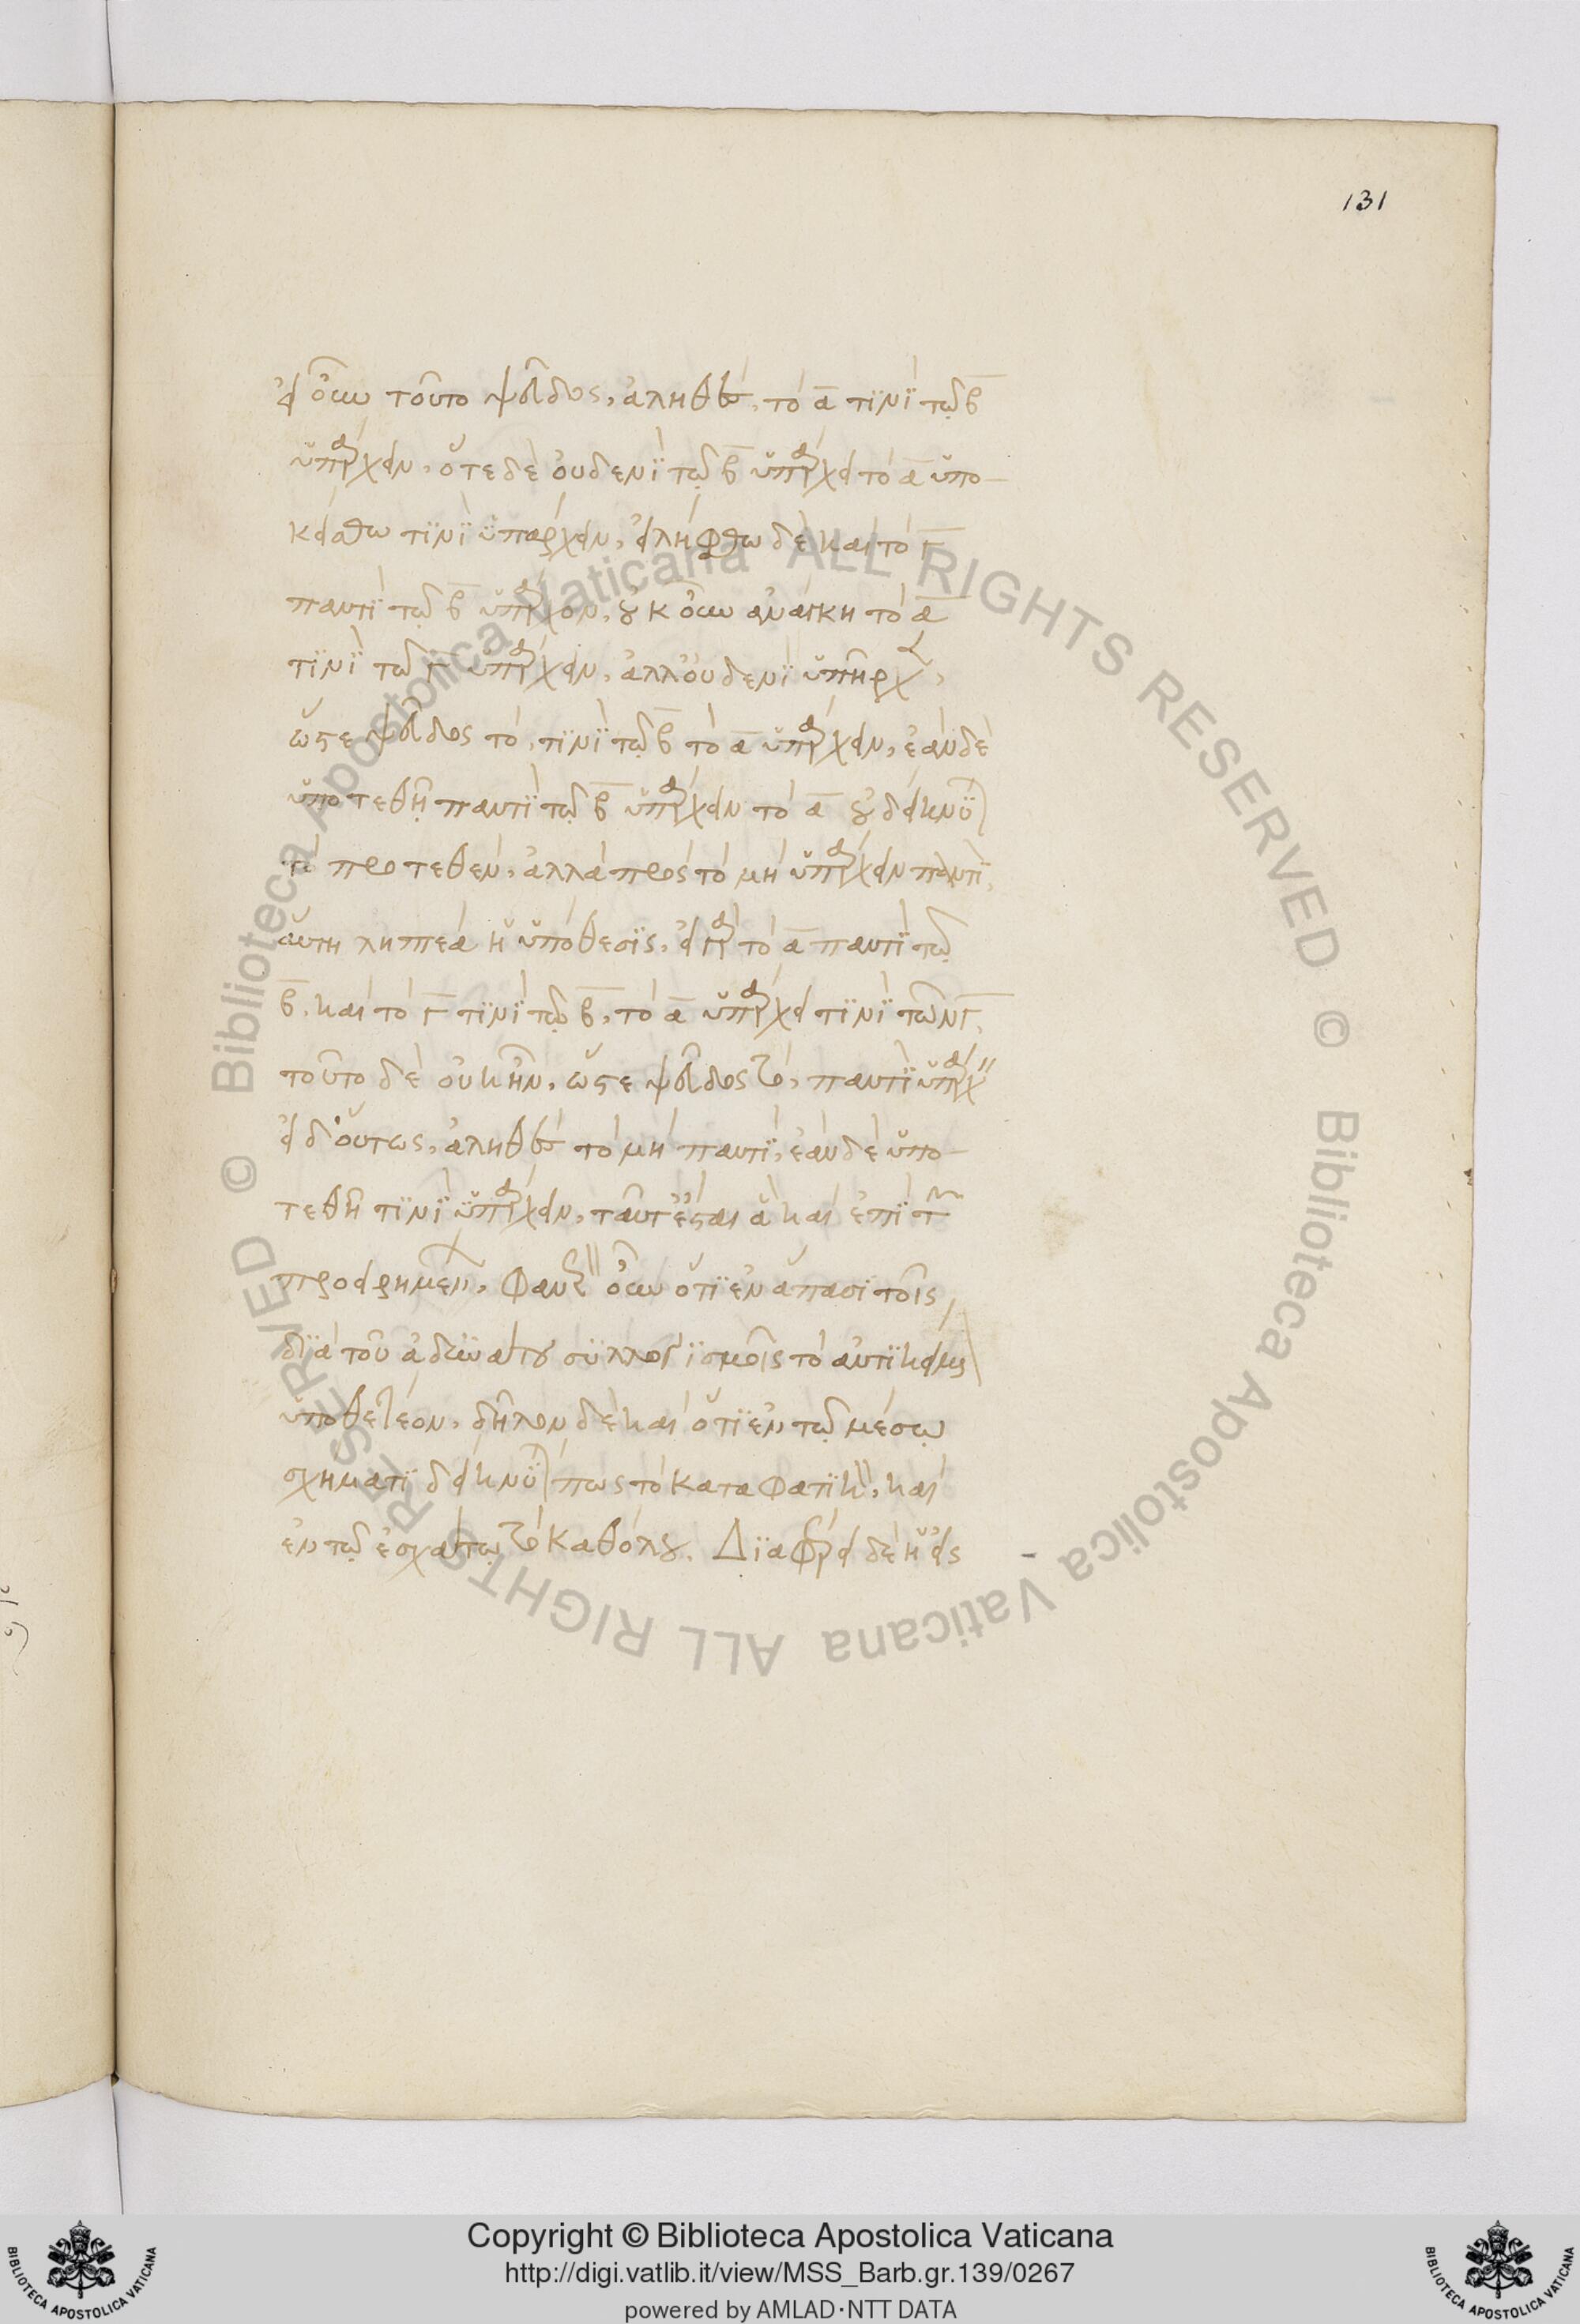 131
εἰ οὖν τοῦτο ψεῦδος, ἀληθὲς, τὸ α̅ τϊνῒ τῷ β̅
ὑπάρχειν, ὅτε δὲ οὐδενῒ τῷ β̅ ὑπάρχει τὸ α̅ ὑπο-
κείσθω τϊνῒ ὑπάρχειν, εἰλήφθω δὲ καὶ τὸ γ̅
παντῒ τῷ β̅ ὑπάρχον, οὐκοῦν ἀνάγκη τὸ α̅
τϊνῒ τῷ γ̅ ὑπάρχειν, ἀλλ' οὐδενῒ ὑπῆρχεν,
ὥστε ψεῦδος τὸ, τϊνῒ τῷ β̅ τὸ α̅ ὑπάρχειν, ἐὰν δὲ
ὑποτεθῇ παντῒ τῷ β̅ ὑπάρχειν τὸ α̅ οὐ δείκνϋται
τὸ προτεθὲν, ἀλλὰ πρὸς τὸ μὴ ὑπάρχειν παντῒ,
αὕτη ληπτέα ἡ ὑπόθεσϊς, εἰ γὰρ τὸ α̅ παντῒ τῷ
β̅, καὶ τὸ γ̅ τϊνῒ τῷ β̅, τὸ α̅ ὑπάρχει τϊνῒ τῶν γ̅,
τοῦτο δὲ οὐκ ἦν, ὥστε ψεῦδος τὸ, παντῒ ὑπάρχειν
εἰ δ' οὕτως, ἀληθὲς τὸ μὴ παντῒ, ἐὰν δὲ ὑπο-
τεθῆ τϊνῒ ὑπάρχειν, ταῦτ' ἔσται ἃ καὶ ἐπῒ τῶν
προειρημένων, φανερὸν οὖν ὅτϊ ἐν ἅπασϊ τοῖς
δϊὰ τοῦ ἀδυνάτου συλλογϊσμοῖς τὸ ἀντϊκείμενον
ὑποθετέον, δῆλον δὲ καὶ ὅτϊ ἐν τῷ μέσῳ
σχήματϊ δείκνϋται πως τὸ καταφατϊκὸν, καὶ
ἐν τῷ ἐσχάτῳ τὸ καθόλου. Δϊαφέρει δὲ ἡ εἰς
Copyright © Biblioteca Apostolica Vaticana
http://digi.vatlib.it/view/MSS_Barb.gr.139/0267
powered by AMLAD·NTT DATA
BIBLIOTECA APOSTOLICA VATICANA
BIBLIOTECA APOSTOLICA VATICANA
© Biblioteca Apostolica Vaticana ALL RIGHTS RESERVED © Biblioteca Apostolica Vaticana ALL RIGHTS RESERVED